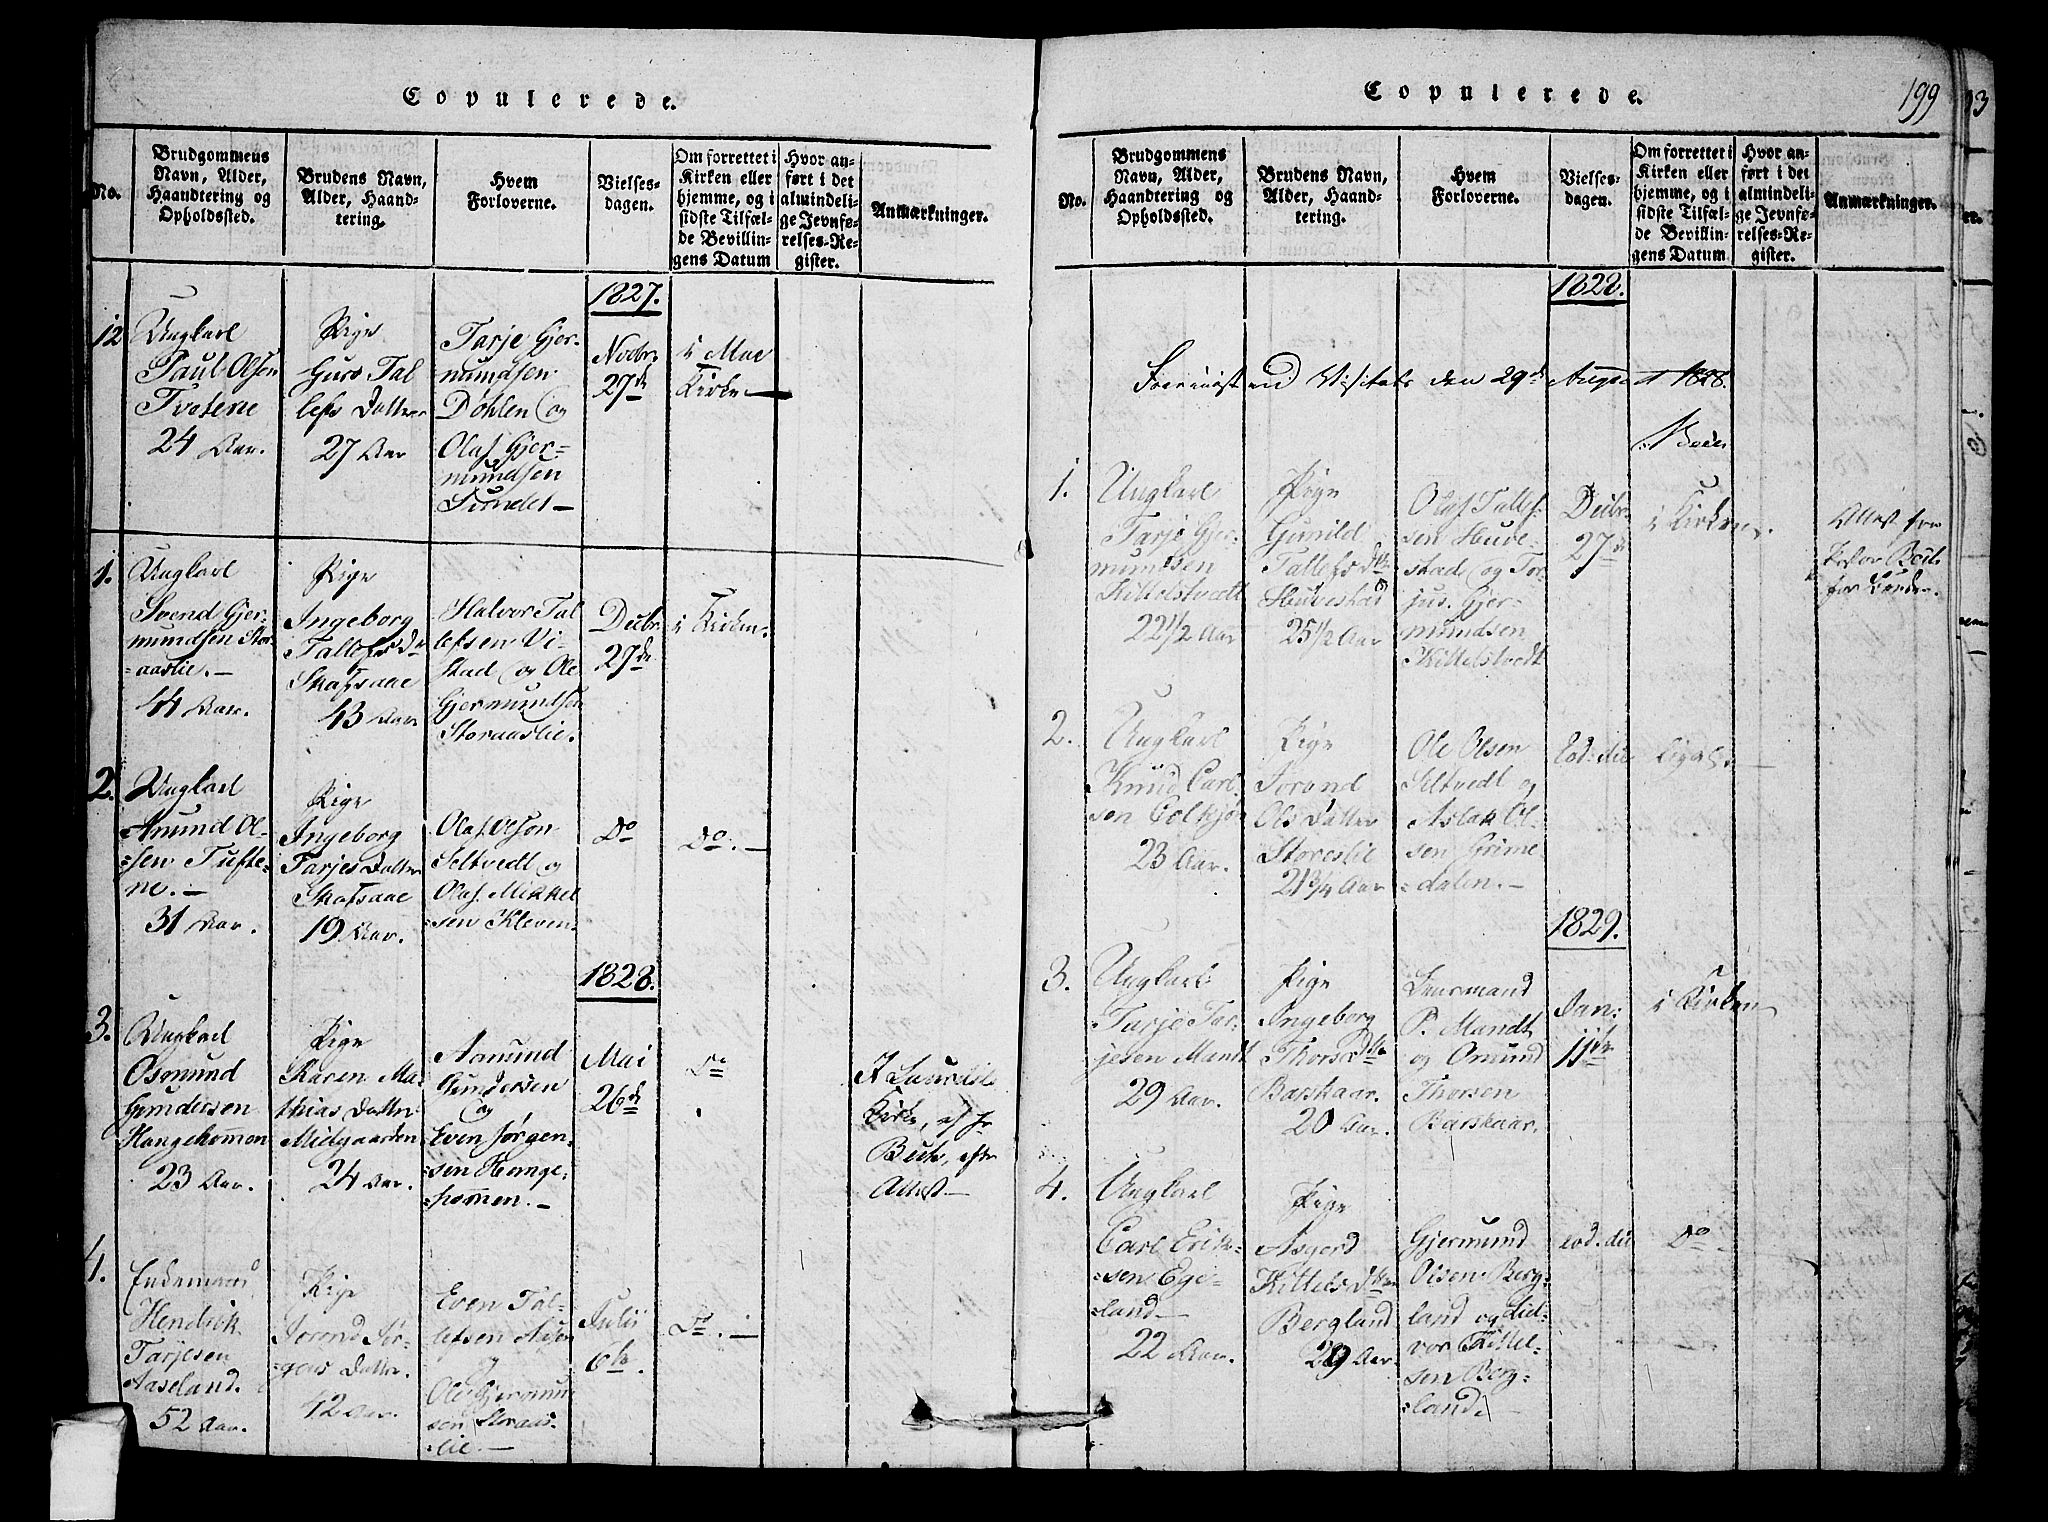 Copulerede.
No.
Brudgommens
Navn, Alder,
Haandtering og
Opholdssted.
Brudens Navn,
Alder, Haand-
tering.
Hvem
Forloverne.
Vielses-
dagen.
Om forrettet i
Kirken eller
hjemme, og i
sidste Tilfæl-
de Bevillin-
gens Datum
Hvor an-
ført i det
almindeli-
ge Jevnfø-
relses-Re-
gister.
Anmærkninger.
1827.
12
Ungkarl
Paul Olsen
Tvetene
24 Aar.
Pige
Guro Tal
lefs Datter
27 Aar
Tarje Gjer-
mundsen
Dühlen og
Olaf Gjer-
mundsen
Sundet
Novbr
27de
i Moe
Kirke
1.
Ungkarl
Svend Gjer-
mundsen Stor-
aaslie.
44 Aar.
Pige
Ingeborg
Tallefs Dr
Skafsaae
43 Aar
Halvor Tal
lefsen Vi-
stad og Ole
Gjermundsen
Storaaslie.
Decbr
27de
i Kirken.
2.
Ungkarl
Amund Ol-
sen Tufte-
ne.
31 Aar.
Pige
Ingeborg
Tarjes Datter
Skafsaae
19 Aar.
Olaf Olson
Seltvedt og
Olaf Mikkel
sen Kleven.
Do
Do.
1828.
3.
Ungkarl
Osmund
Gundersen
Hangehommen
23 Aar.
Pige
Karen Ma-
thias Datter
Midgaarden
24 Aar.
Aamund
Gundersen
og
Even Jørgen-
sen Hange-
hommen.
Mai
26de
Do
Kirke, af Hr
efter
Attest
4.
Enkemand
Hendrik
Tarjesen
Aaseland.
52 Aar.
Pige
Jorend Jør-
gens Datter.
42 Aar.
Even Tal-
lefsen
og
Ole Gjermun
sen Storaas-
lie.
Julii
6te
Do.
Copulerede.
199
No.
Brudgommens
Navn, Alder,
Haandtering og
Opholdssted.
Brudens Navn,
Alder, Haand-
tering.
Hvem
Forloverne.
Vielses-
dagen.
Om forrettet i
Kirken eller
hjemme, og i
sidste Tilfæl-
de Bevillin-
gens Datum
Hvor an-
ført i det
almindeli-
ge Jevnfø-
relses-Re-
gister.
Anmærkninger.
1828.
Foreviist ved Visitats den 29de August 1828.
1.
Ungkarl
Tarje Gjer-
mundsen
Kittelstvedt
22 1/2 Aar
Pige
Gunild
Tallefs Dtr
Huvestad
25 1/2 Aar
Olaf Tallef-
sen Huve-
stad og Tor-
jus Gjer-
mundsen
Kittelstvedt
Decbr
27de
i Kirken.
Attest fra
for Bruden.
2.
Ungkarl
Knud Carl-
sen
23 Aar.
Pige
Jorand
Ols Datter
Storeslie
21 3/4 Aar
Ole Olsen
Seltvedt og
Aslak Ol-
sen Grime
dalen.
Eod: die
1829.
3.
Ungkarl
Tarje Tar-
jesen Mandt
29 Aar.
Pige
Ingeborg
Thors Dtr
Baskaar.
20 Aar.
Lensmand
P. Mandt
og Omund
Thorsen
Barskaar.
Jan:
11te
i Kirken
4.
Ungkarl
Carl Erik-
sen Ege-
land
22 Aar.
Pige
Asgerd
Kittels Dtr
Bergland
29 Aar.
Gjermund
Olsen Berg-
land og Eid-
vor Kittel-
sen Berg-
land.
eod. die
Do